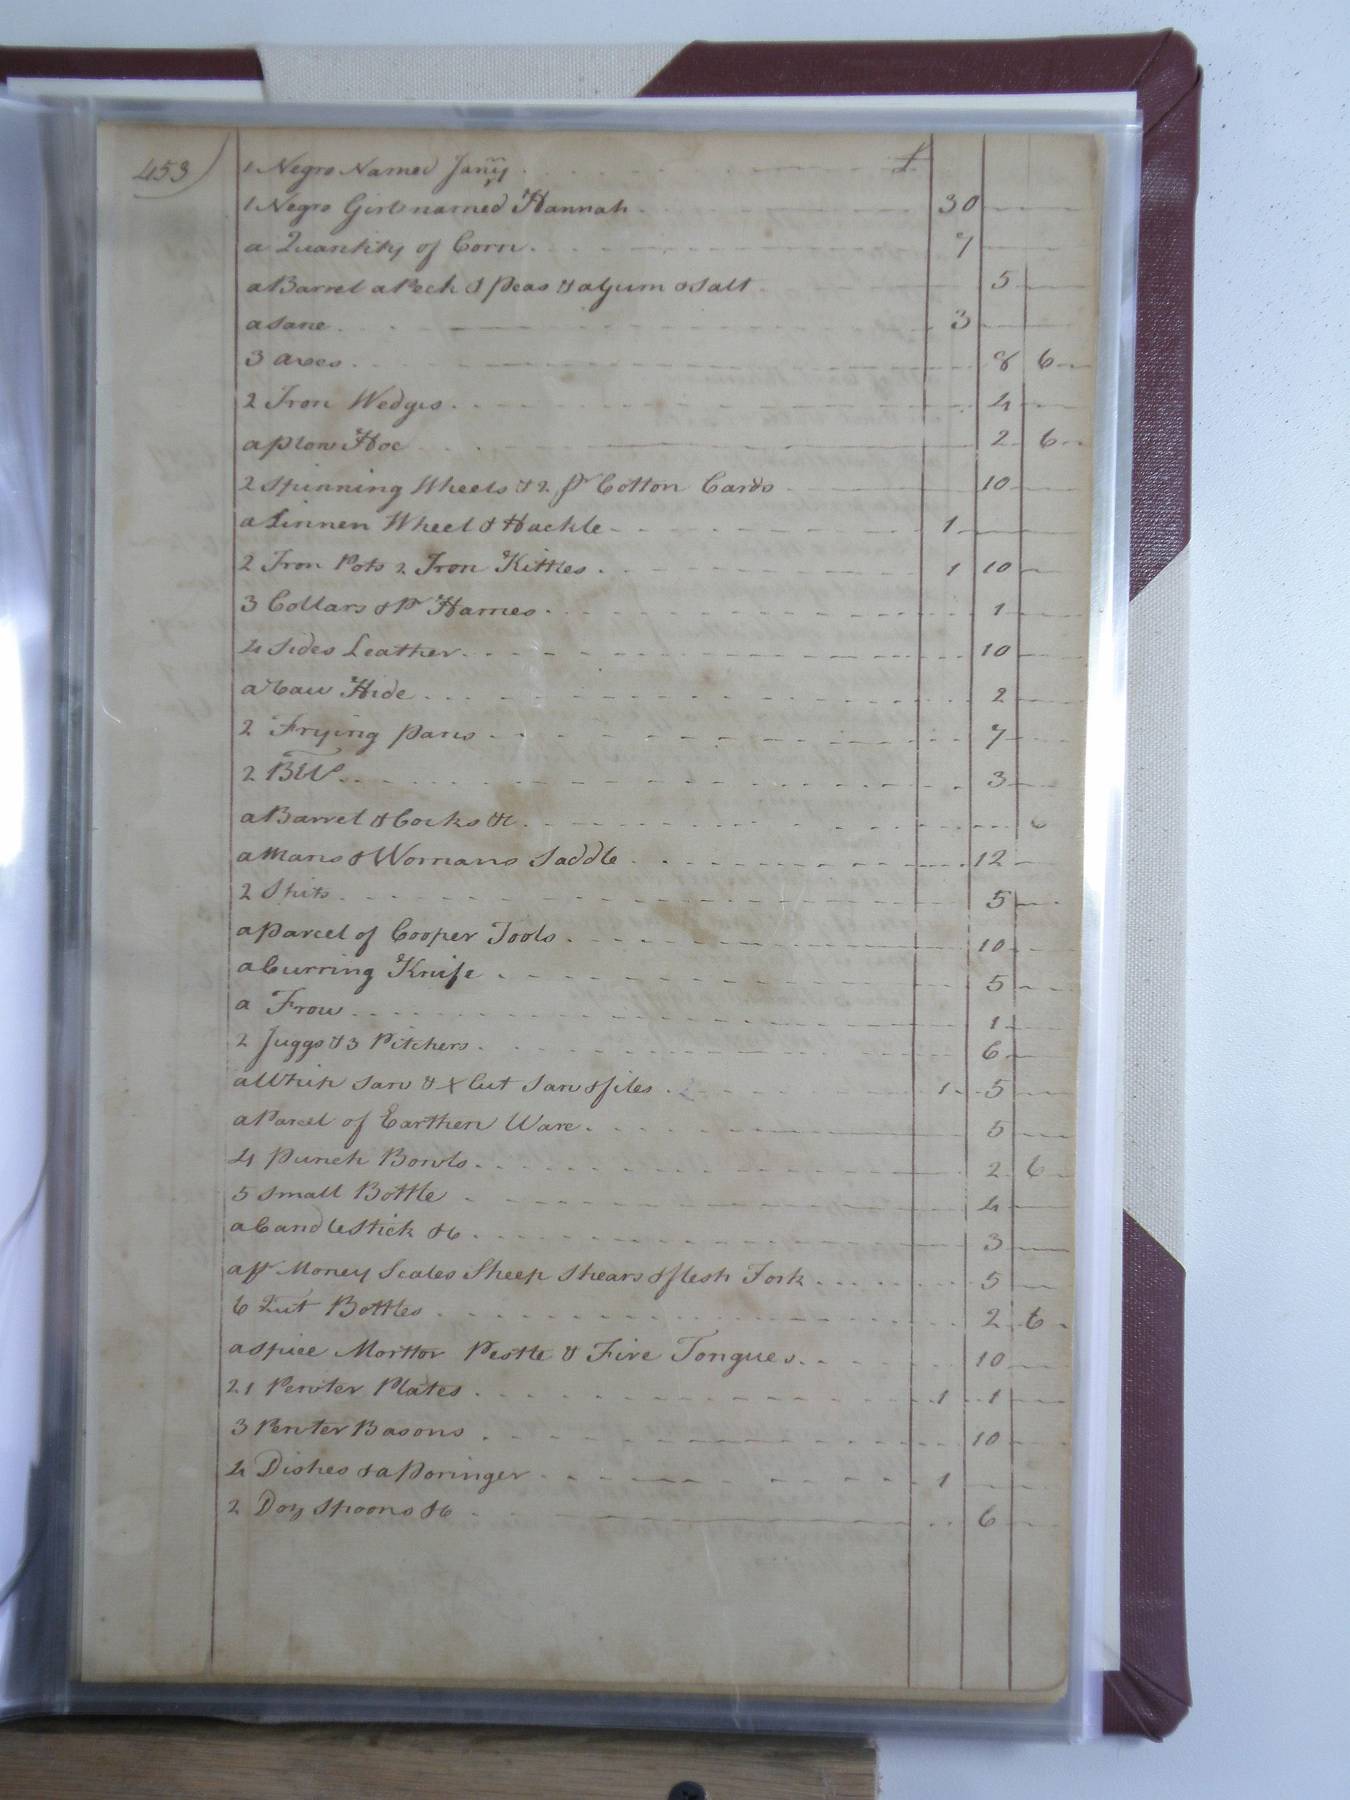 453) 1 Negro Named Janny £
1 Negro Girl named Hannah 30
a Quantity of Corn 7
a Barrel a Peck & Peas & a Gum & Salt 5
a Sane 3
3 axes 8 6
2 Iron Wedges 4
a plow Hoe 2 6
2 Spinning Wheels & 2 pr Cotton Cards 10
a Linnen Wheel & Hackle 1
2 Iron Pots 2 Iron Kittles 1 10
3 Collars & Pr Hames 1
4 Sides Leather 10
a Cau Hide 2
2 Frying pans 7
2 3
a Barrel & Cocks &c 6
a Mans & Womans Saddle 12
2 Spits 5
a parcel of Cooper Tools 10
a Curring Knife 5
a Frow 1
2 Juggs & 3 Pitchers 6
a Whip Saw & X Cut Saw & files 1 5
a Parcel of Earthen Ware 5
4 Punch Bowls 2 6
5 Small Bottle 4
a Candlestick &c 3
a pr Money Scales Sheep Shears & flesh Fork 5
6 Qut Bottles 2 6
a Spice Morttor Pestle & Fire Tongues 10
21 Pewter Plates 1 1
3 Pewter Basons 10
4 Dishes & a Poringer 1
2 Doz Spoons &c 6